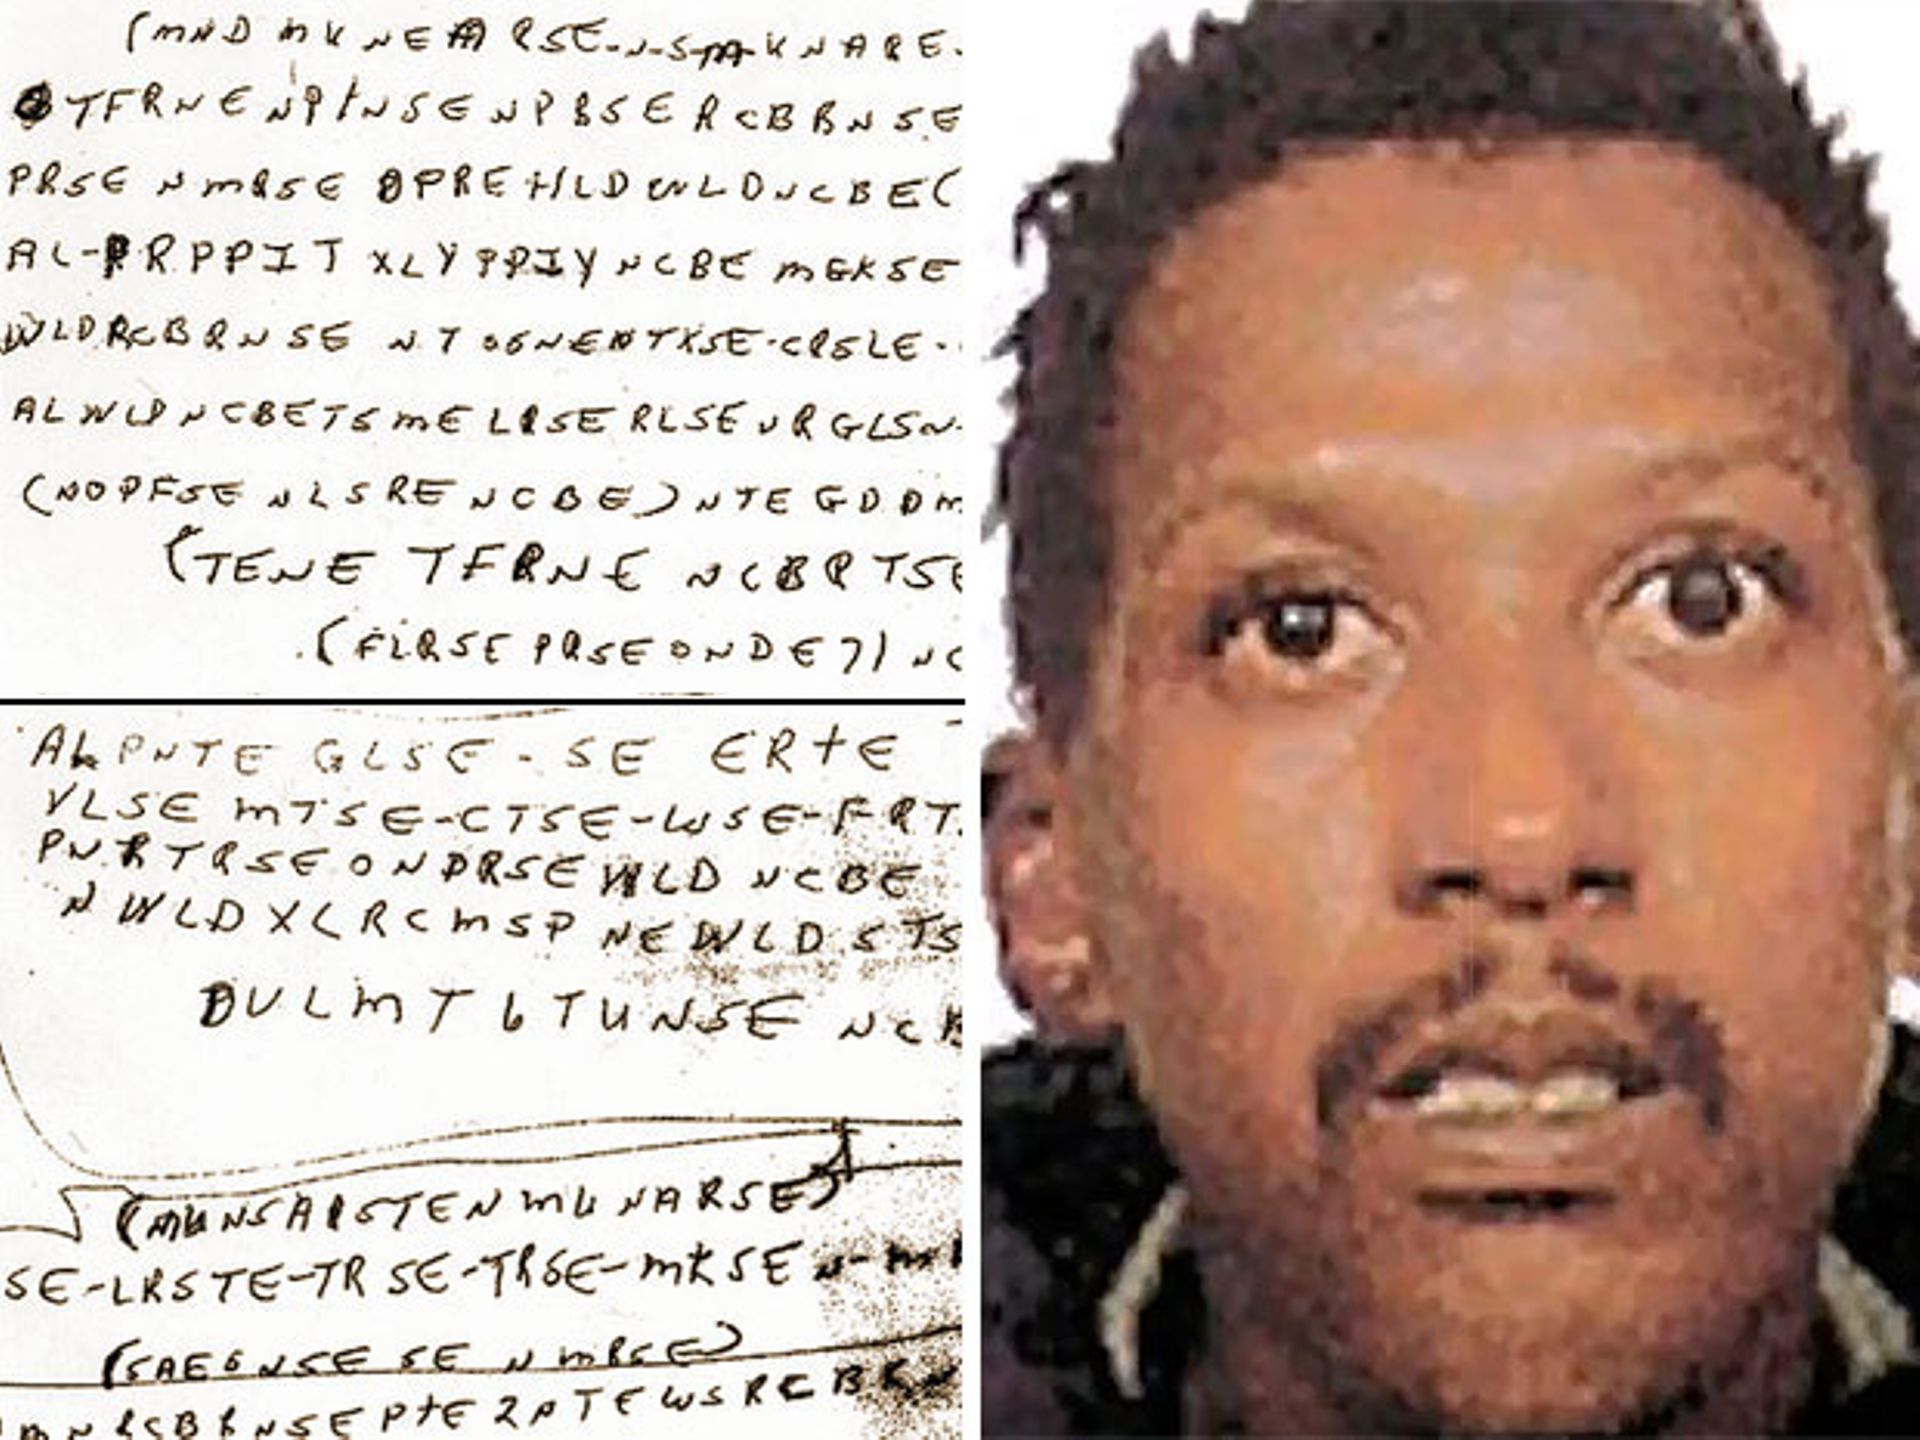 (MND MKNEARSE-N-S-M-KNARE-
TFRNENPINSENPBSERCBBNSE
PRSE NMRSE OPREHLDWLDNCBE(
AL-PRPPIT XLYPPIYNCBE MGKSE
WLDRCBRNSE NTOGNENTXSE-CRSLE-
ALWLDNCBETSMELRSERLSEURGLSN-
(NOPFSE NLSRE NCBE) NTEGDDM
(TENE TFRNE NCBRTSE
(FLRSE PRSEONDE71) NC
ALPNTE GLSE-SE ERTE
VLSE MTSE-CTSE-WSE-FRT
PNRTRSEONPRSEWLD NCBE
NWLDXLRCMSP NEWLDSTS
DULMT6TUNSE NCB
(MUNSARSTENMUNARSE)
SE-LRSTE-TRSE-TRSE-MKSEN-M
(SAE6NSESENMBSE)